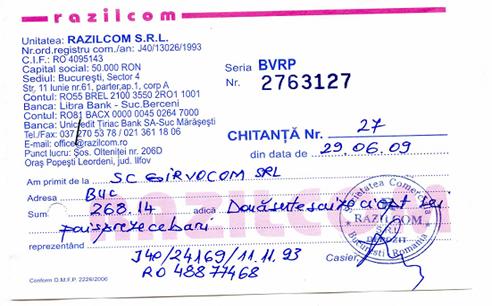 razilcom
Unitatea: RAZILCOM S.R.L.
Nr.ord.registru com./an: J40/13026/1993
C.I.F.: RO 4095143
Capital social: 50.000 RON
Sediul: Bucureşti, Sector 4
Str, 11 Iunie nr.61, parter,ap.1, corp A
Contul: RO55 BREL 2100 3550 2RO1 1001
Banca: Libra Bank - Suc.Berceni
Contul: RO81 BACX 0000 0045 0264 7000
Banca: Unicredit Tiriac Bank SA-Suc Mărăşeşti
Tel./Fax: 037 270 53 78 / 021 361 18 06
E-mail: office@razilcom.ro
Punct lucru: Şos. Olteniţei nr. 206D
Oraş Popeşti Leordeni, jud. Ilfov
Seria BVRP
Nr. 2763127
CHITANŢĂ Nr. 27
din data de 29.06.09
Am primit de la SC GIRVOCOM SRL
Adresa BUC
Sum 268.14 adică Două sute saizecişiopt lei
paisprezece bani.
reprezentând J40/24169/11.11.93
RO 4887468
Casier,
Unitatea Comercială
RAZILCOM
S.R.L.
DEPOZIT
Bucureşti Romania
RAZILCOM
Conform O.M.F.P. 2226/2006